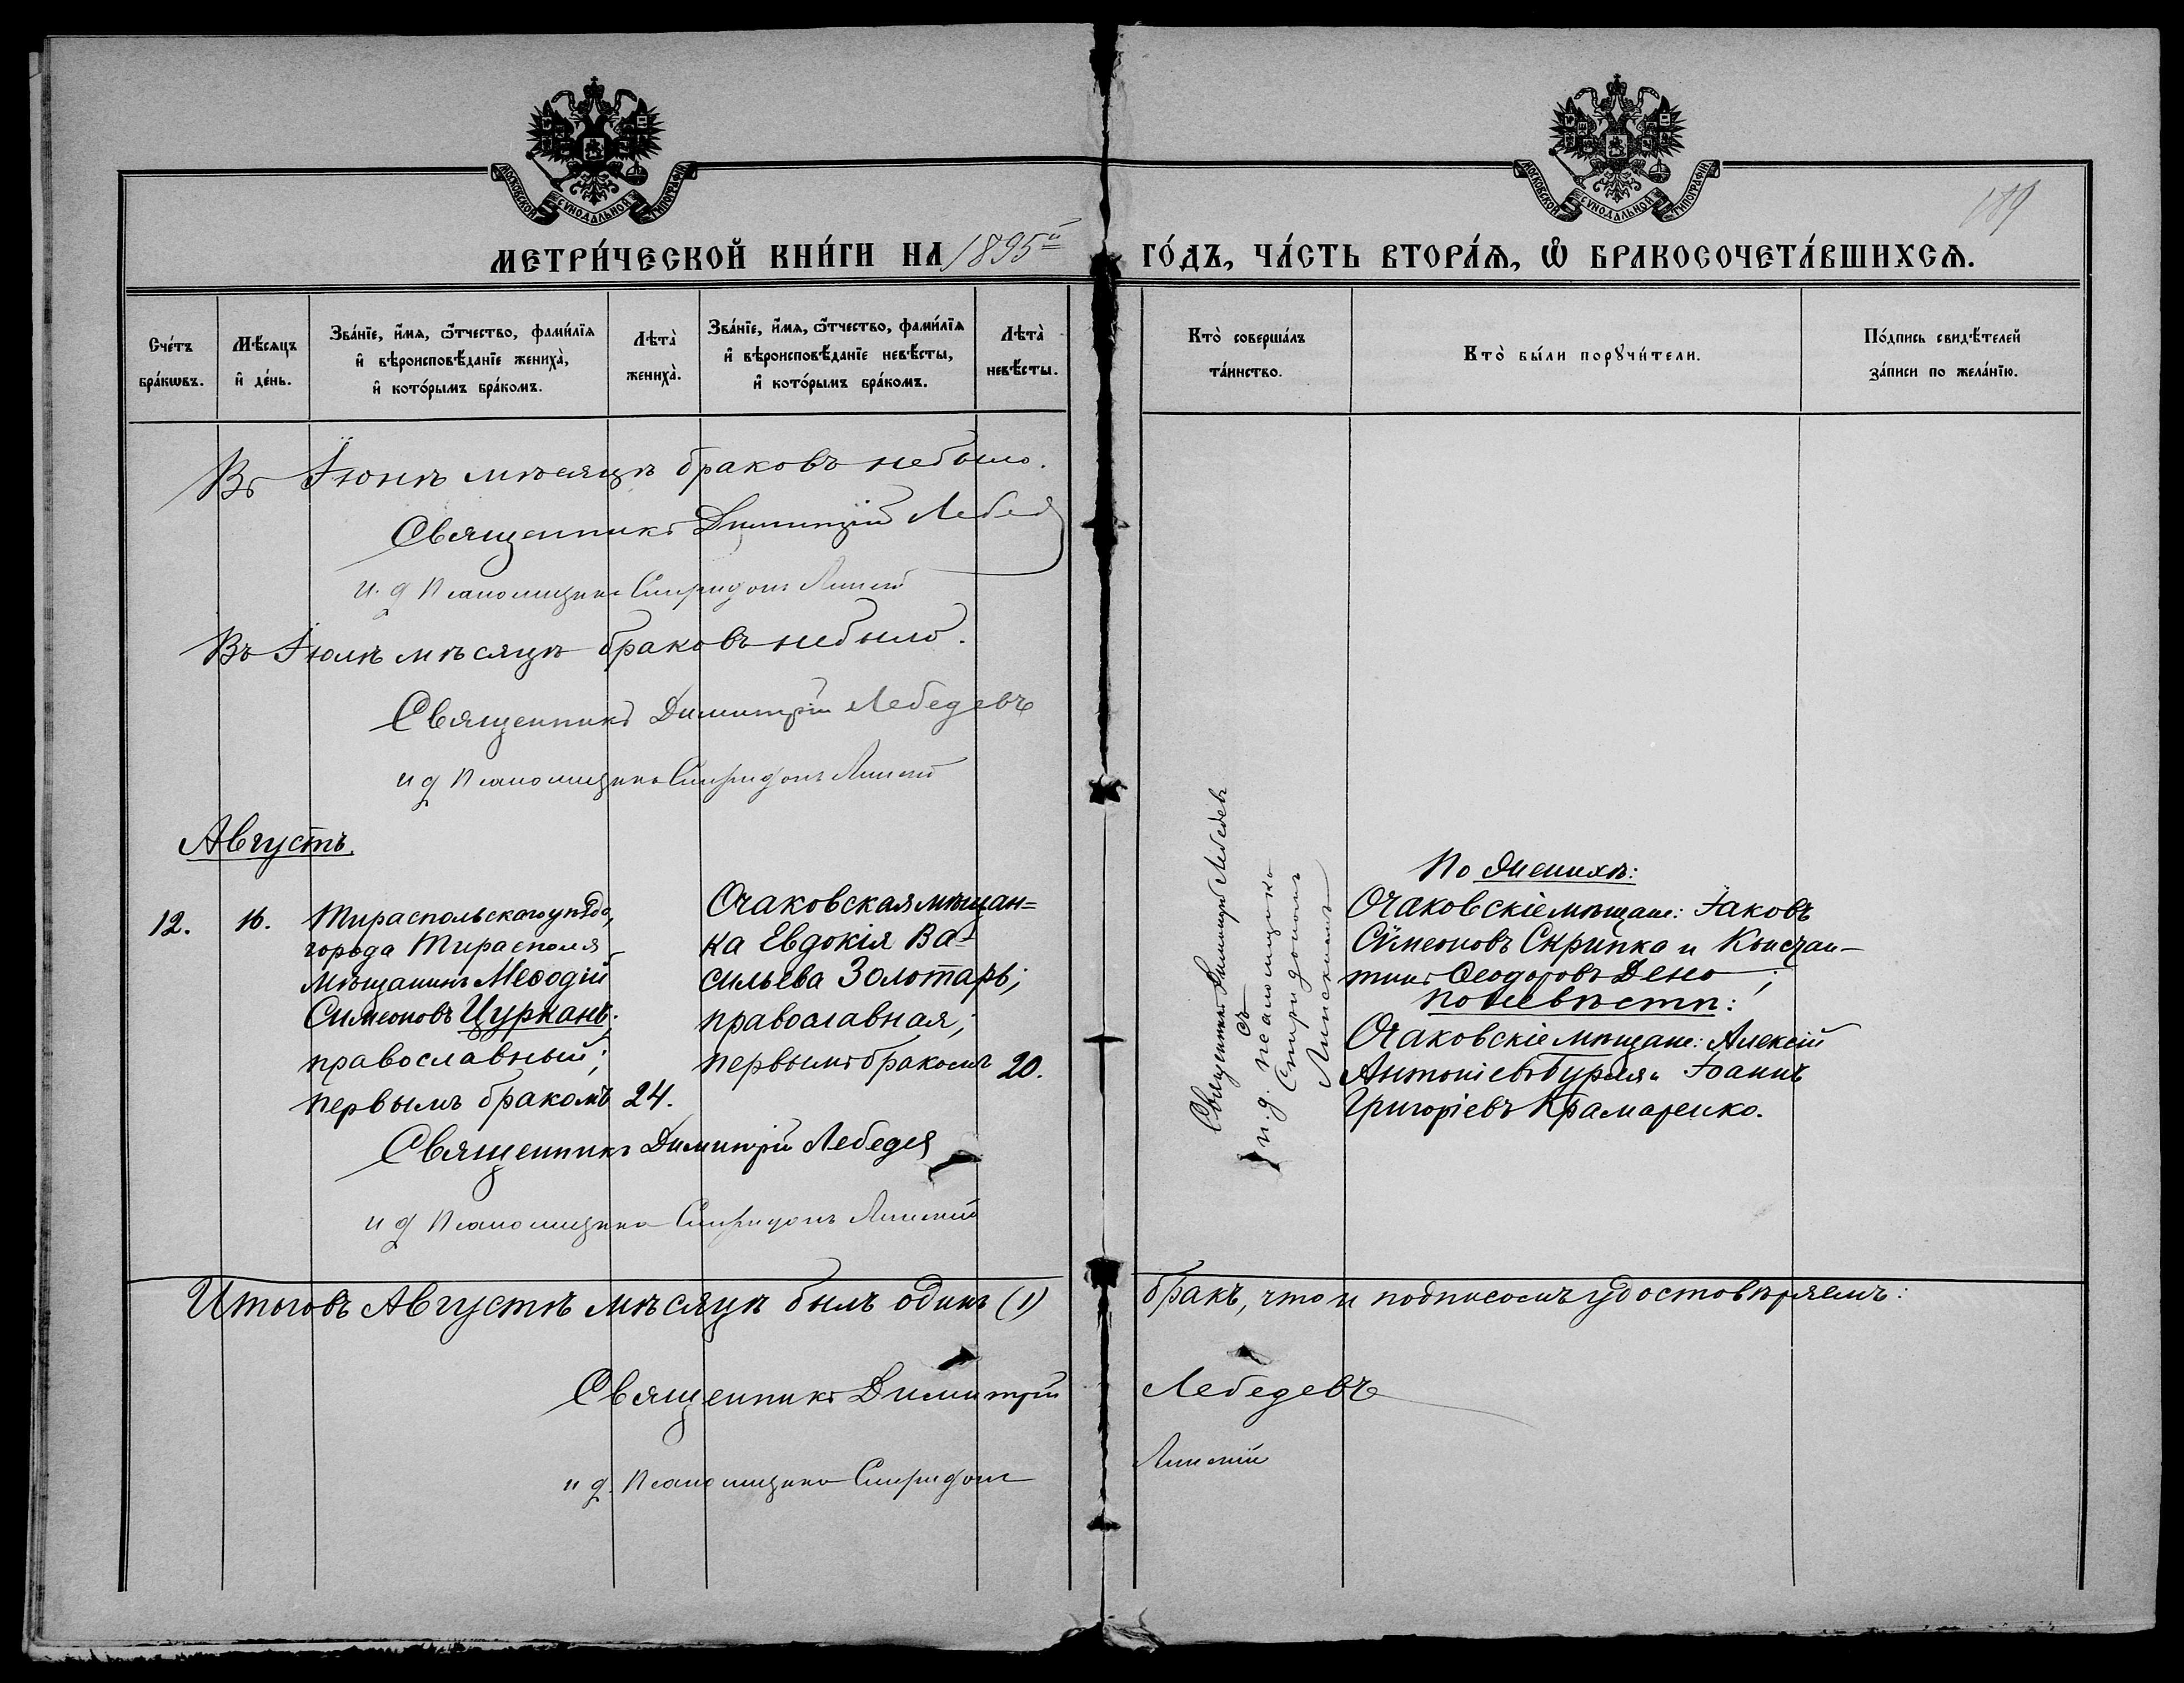 МОСКОВСКОЙ СѴНОДАЛЬНОЙ ТИПОГРАФІИ
МОСКОВСКОЙ СѴНОДАЛЬНОЙ ТИПОГРАФІИ
189
МЕТРИ́ЧЕСКОЙ КНИ́ГИ НА 1895й ГО́ДЪ, ЧА́СТЬ ВТОРА́Ѧ, Ѡ҆ БРАКОСОЧЕТА́ВШИХСѦ.
Сче́тъ бра́кѡвъ.
Мѣ́сѧцъ и҆ де́нь.
Зва́нїе, и҆́мѧ, ѻ҆́тчество, фами́лїѧ и҆ вѣроисповѣ́данїе жениха̀, и҆ кото́рымъ бра́комъ.
Лѣта̀ жениха̀.
Зва́нїе, и҆́мѧ, ѻ҆́тчество, фами́лїѧ и҆ вѣроисповѣ́данїе невѣ́сты, и҆ кото́рымъ бра́комъ.
Лѣта̀ невѣ́сты.
Кто̀ соверша́лъ та́инство.
Кто̀ бы́ли порꙋчи́тели.
По́дпись свидѣ́телей за́писи по жела́нїю.
Въ Іюнѣ мѣсяцѣ браковъ небыло.
Священникъ Димитрій Лебед
и. д Псаломщика Спиридонъ Липскій
Въ Іюлѣ мѣсяцѣ браковъ небыло.
Священникъ Димитрій Лебедевъ
и д Псаломщика Спиридонъ Липскій
Августъ.
12.
16.
Тираспольскаго уѣзда,
города Тирасполя
мѣщанинъ Меѳодій
Симеоновъ Цурканъ;
православный;
первымъ бракомъ
24.
Очаковская мѣщан=
ка Евдокія Ва=
сильева Золотарь;
православная;
первымъ бракомъ
20.
Священникъ Димитрій Лебедев
съ
и. д. псаломщика
Спиридономъ
Липскимъ
По женихѣ:
Очаковскіе мѣщане: Іаковъ
Сѵмеоновъ Скрипка и Констан-
тинъ Ѳеодоровъ Дено;
по невѣстѣ:
Очаковскіе мѣщане: Алексій
Антоніевъ Бурля и Іоаннъ
Григоріевъ Крамаренко.
Священникъ Димитрій Лебедев
и д Псаломщика Спиридонъ Липскій
Итого въ Августѣ мѣсяцѣ былъ одинъ (1) бракъ, что и подписомъ удостовѣряемъ:
Священникъ Димитрій Лебедевъ
и д. Псаломщика Спиридонъ Липскій